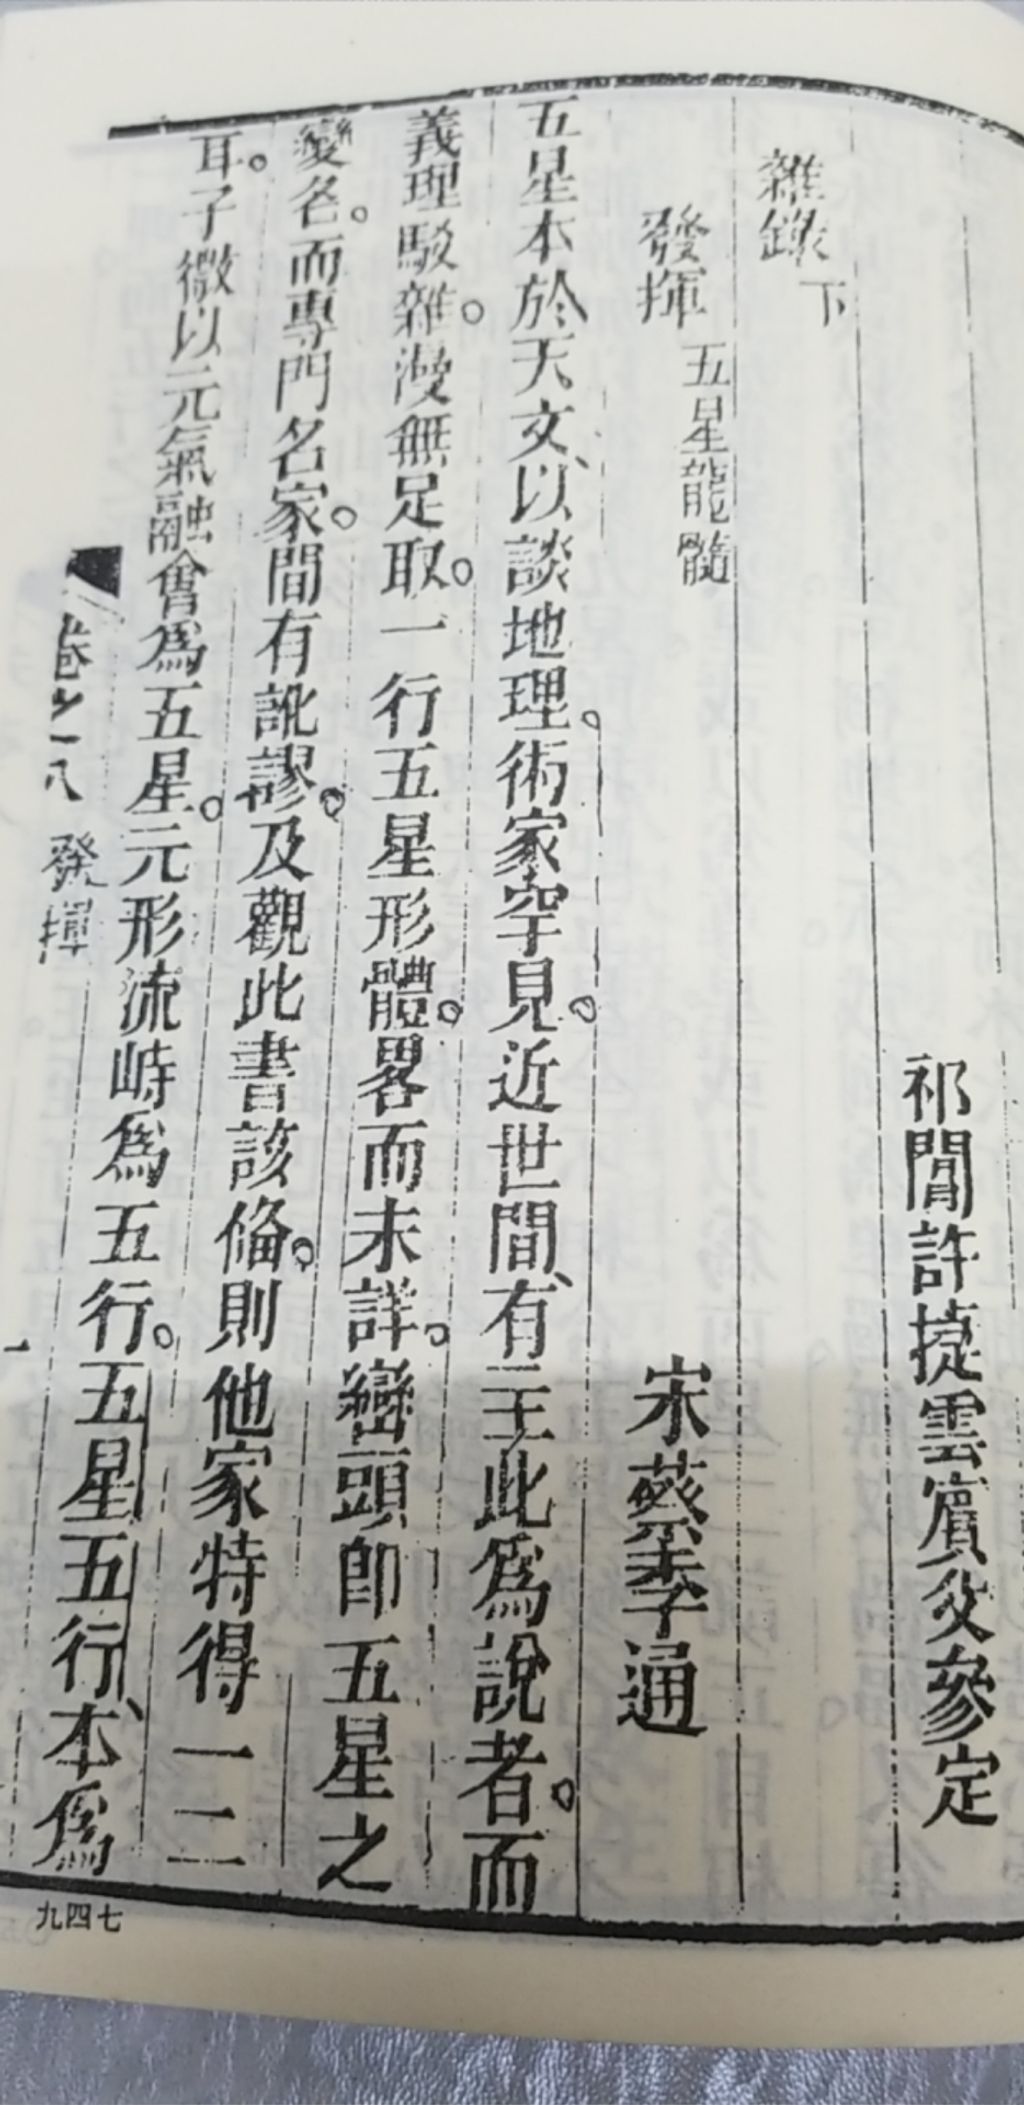 祁閶許㨗雲賓父參定
雜錄下
發揮 五星龍髓
宋蔡季通
五星本於天文、以談地理。術家罕見。近世間、有主此爲說者。而
義理駁雜。漫無足取。一行五星形體。畧而未詳。巒頭卽五星之
變名。而專門名家。間有訛謬。及觀此書該俻。則他家特得一二
耳。子微以元氣融會爲五星。元形流峙爲五行。五星五行、本爲
卷之一八 發揮 一
九四七